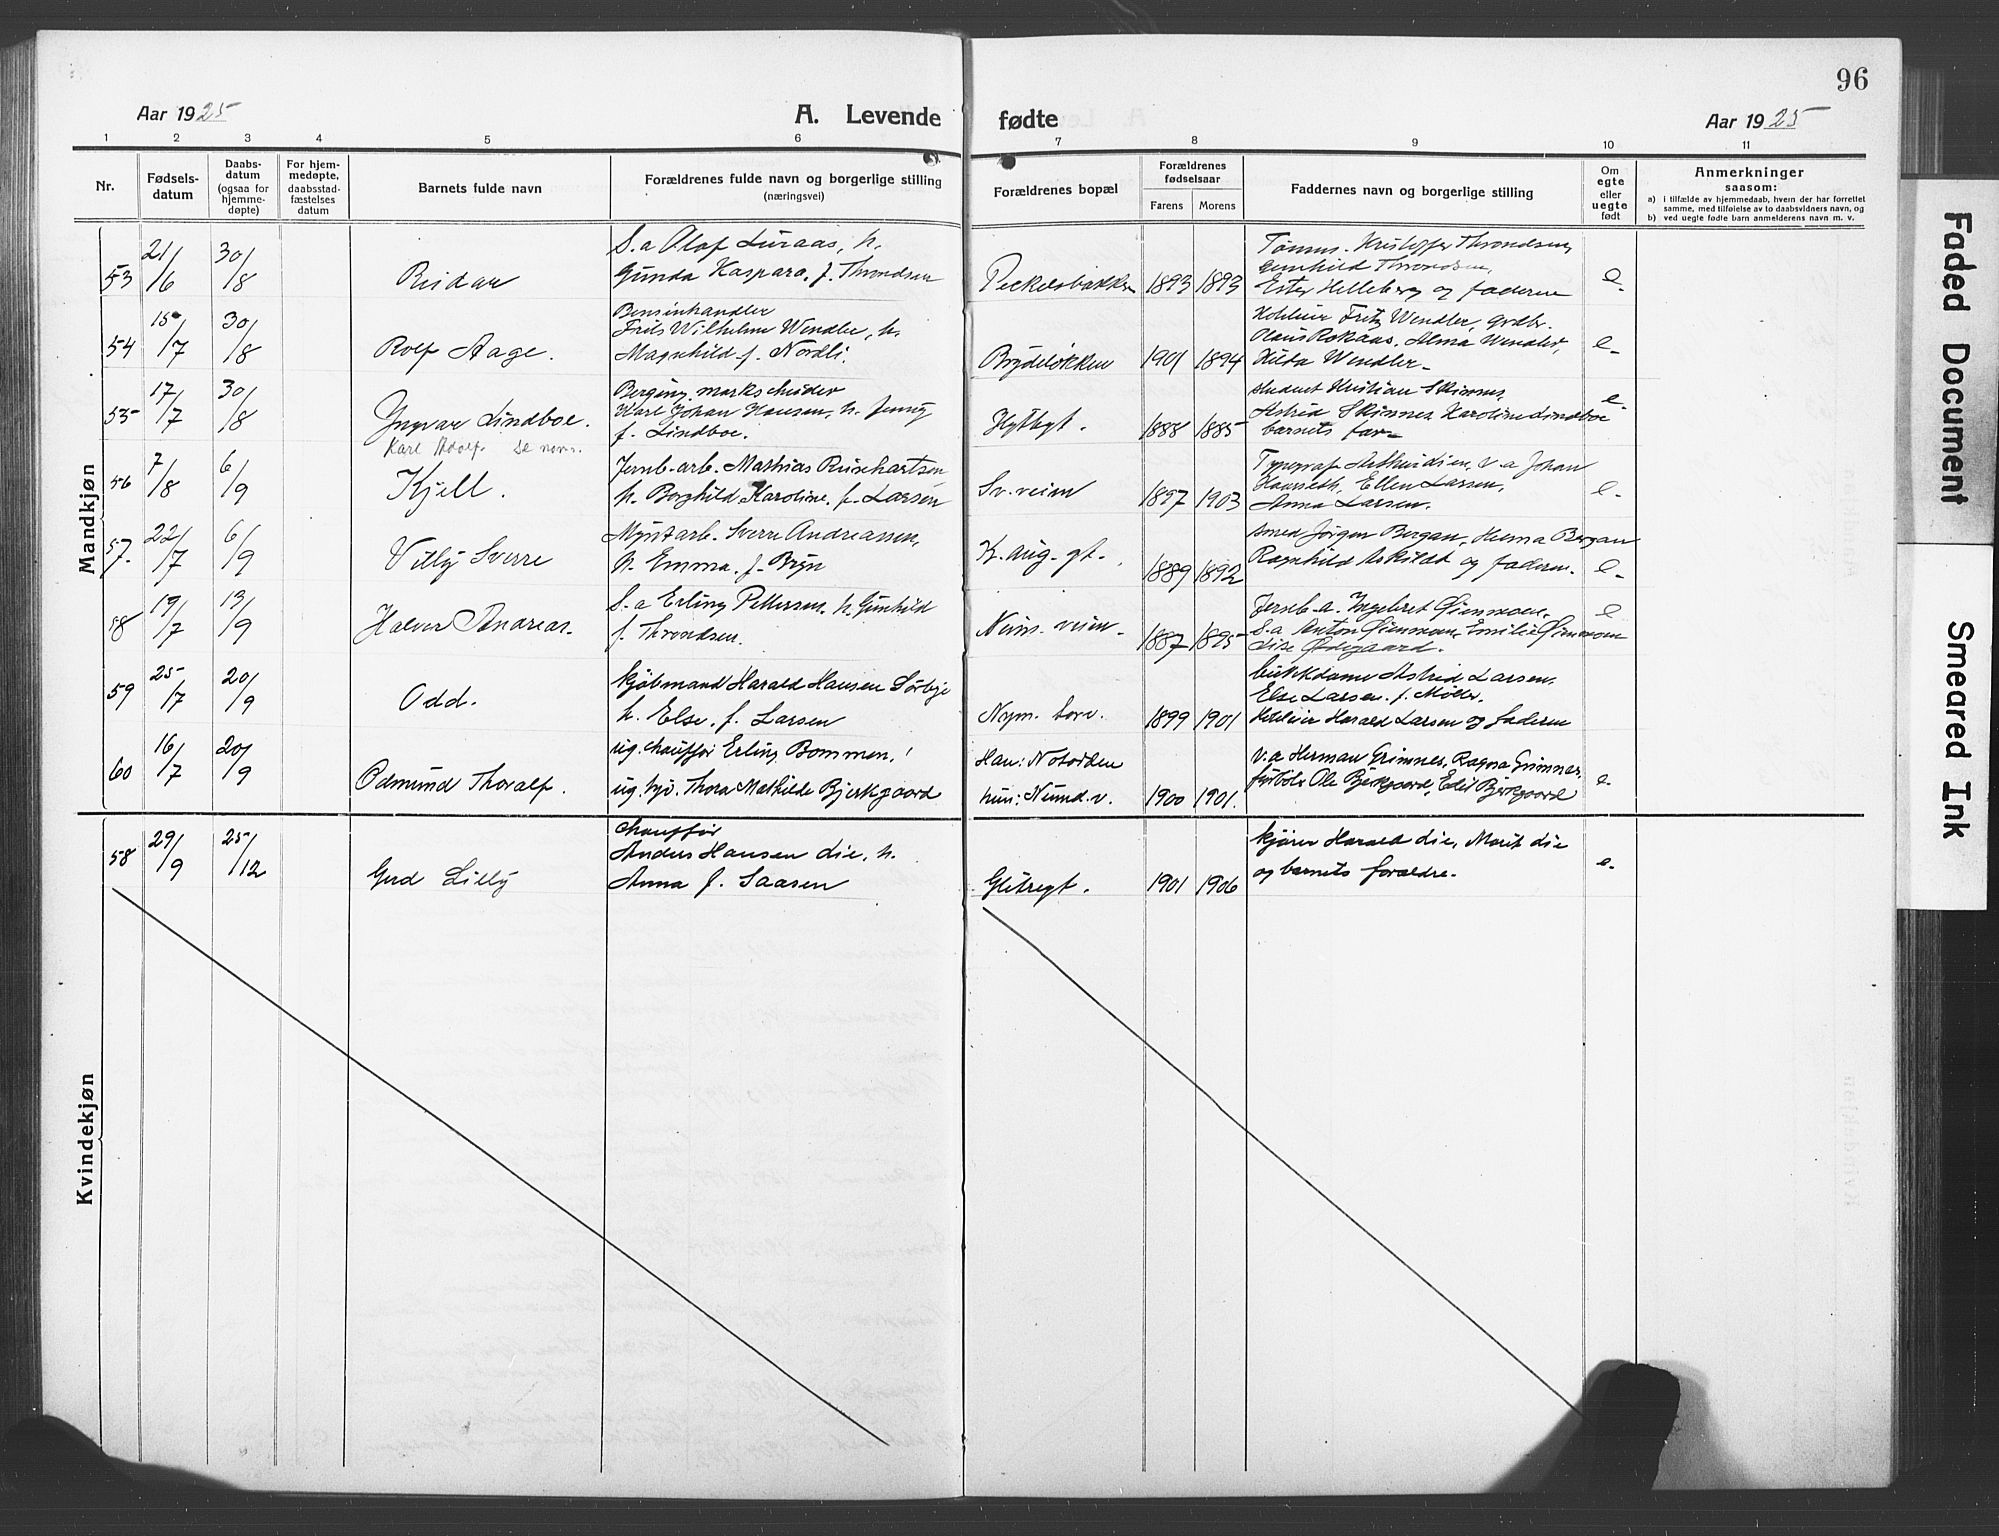 96
Aar 1925
A. Levende
fødte
Aar 1925
1 2 3 4 5 6 7 8 9 10 11
Nr.
Fødsels-
datum
Daabs-
datum
(ogsaa for
hjemme-
døpte)
For hjem-
medøpte,
daabsstad-
fæstelses
datum
Barnets fulde navn
Forældrenes fulde navn og borgerlige stilling
(næringsvei)
Forældrenes bopæl
Forældrenes
fødselsaar
Farens Morens
Faddernes navn og borgerlige stilling
Om
egte
eller
uegte
født
Anmerkninger
saasom:
a) i tilfælde av hjemmedaab, hvem der har forrettet
samme, med tilføielse av to daabsvidners navn, og
b) ved uegte fødte barn anmelderens navn m. v.
Mandkjøn
53 21/6 30/8 Reidar
S.a Olaf Luraas, h.
Gunda Kaspara, f. Throndsen
1893 1893
Kristoffer Throndsen,
Gunhild Throndsen,
Ester Helleberg og faderen
e.
54 15/7 30/8 Rolf Aage.
Bensinhandler
Frits Wilhelm Wendler, h.
Magnhild f. Nordli.
Brydeløkken 1901 1894
Fritz Wendler, grdbr.
Alma Wendler,
Hilda Wendler
e
55 17/7 30/8 Yngvar Lindboe.
Karl Adolf.
Berging. markscheider
Karl Johan Hansen, h. Jenny
f. Lindboe.
Hyttegt. 1888 1885
student Kristian Skinnes,
Astrid Skinnes, Karoline Lindboe
barnets far
e.
56 7/8 6/9 Kjell.
Jernb-arb. Mathias
h. Borghild Karoline, f. Larsen
Sv. veien 1897 1903
Typograf v.a Johan
Ellen Larsen,
Anna Larsen.
e.
57. 22/7 6/9 Villy Sverre
Myntarb. Sverre Andreassen,
h. Emma, f. Bryn
K. aug. gt. 1889 1892
smed Jørgen Bergan, Herma Bergan
Ragnhild og faderen.
e.
58 19/7 13/9 Halvor Andreas.
S.a Erling Pettersen, h. Gunhild
f. Throndsen.
Num. veien. 1887 1895
Jernb-a. Ingebret Øienmoen,
S.a Anton Øienmoen, Emilie Øienmoen
Lise Ødegaard.
e
59 25/7 20/9 Odd.
kjøbmand Harald Hansen Sørbye
h. Else, f. Larsen
Nym. torv. 1899 1901
butikkdame Astrid Larsen,
Else Larsen. f. Møller,
Harald Larsen og faderen
60 16/7 20/9 Odmund Thoralf.
ug. chauffør Erling Bommen,
ug. Thora Mathilde Bjerkgaard
Han: Notodden
hun: Numd.v. 1900 1901.
v.a Herman Grimnes, Ragna Grimnes,
Ole Bjerkgaard, Edit Bjerkgaard
e.
Kvindekjøn
58 29/9 25/12 Gerd Lilly
Chauffør
Anders Hansen Lie, h.
Anna f. Saasen
Glitregt. 1901 1906
kjører Harald Lie, Marit Lie
og barnets foraldre.
e.
Faded Document
Smeared Ink